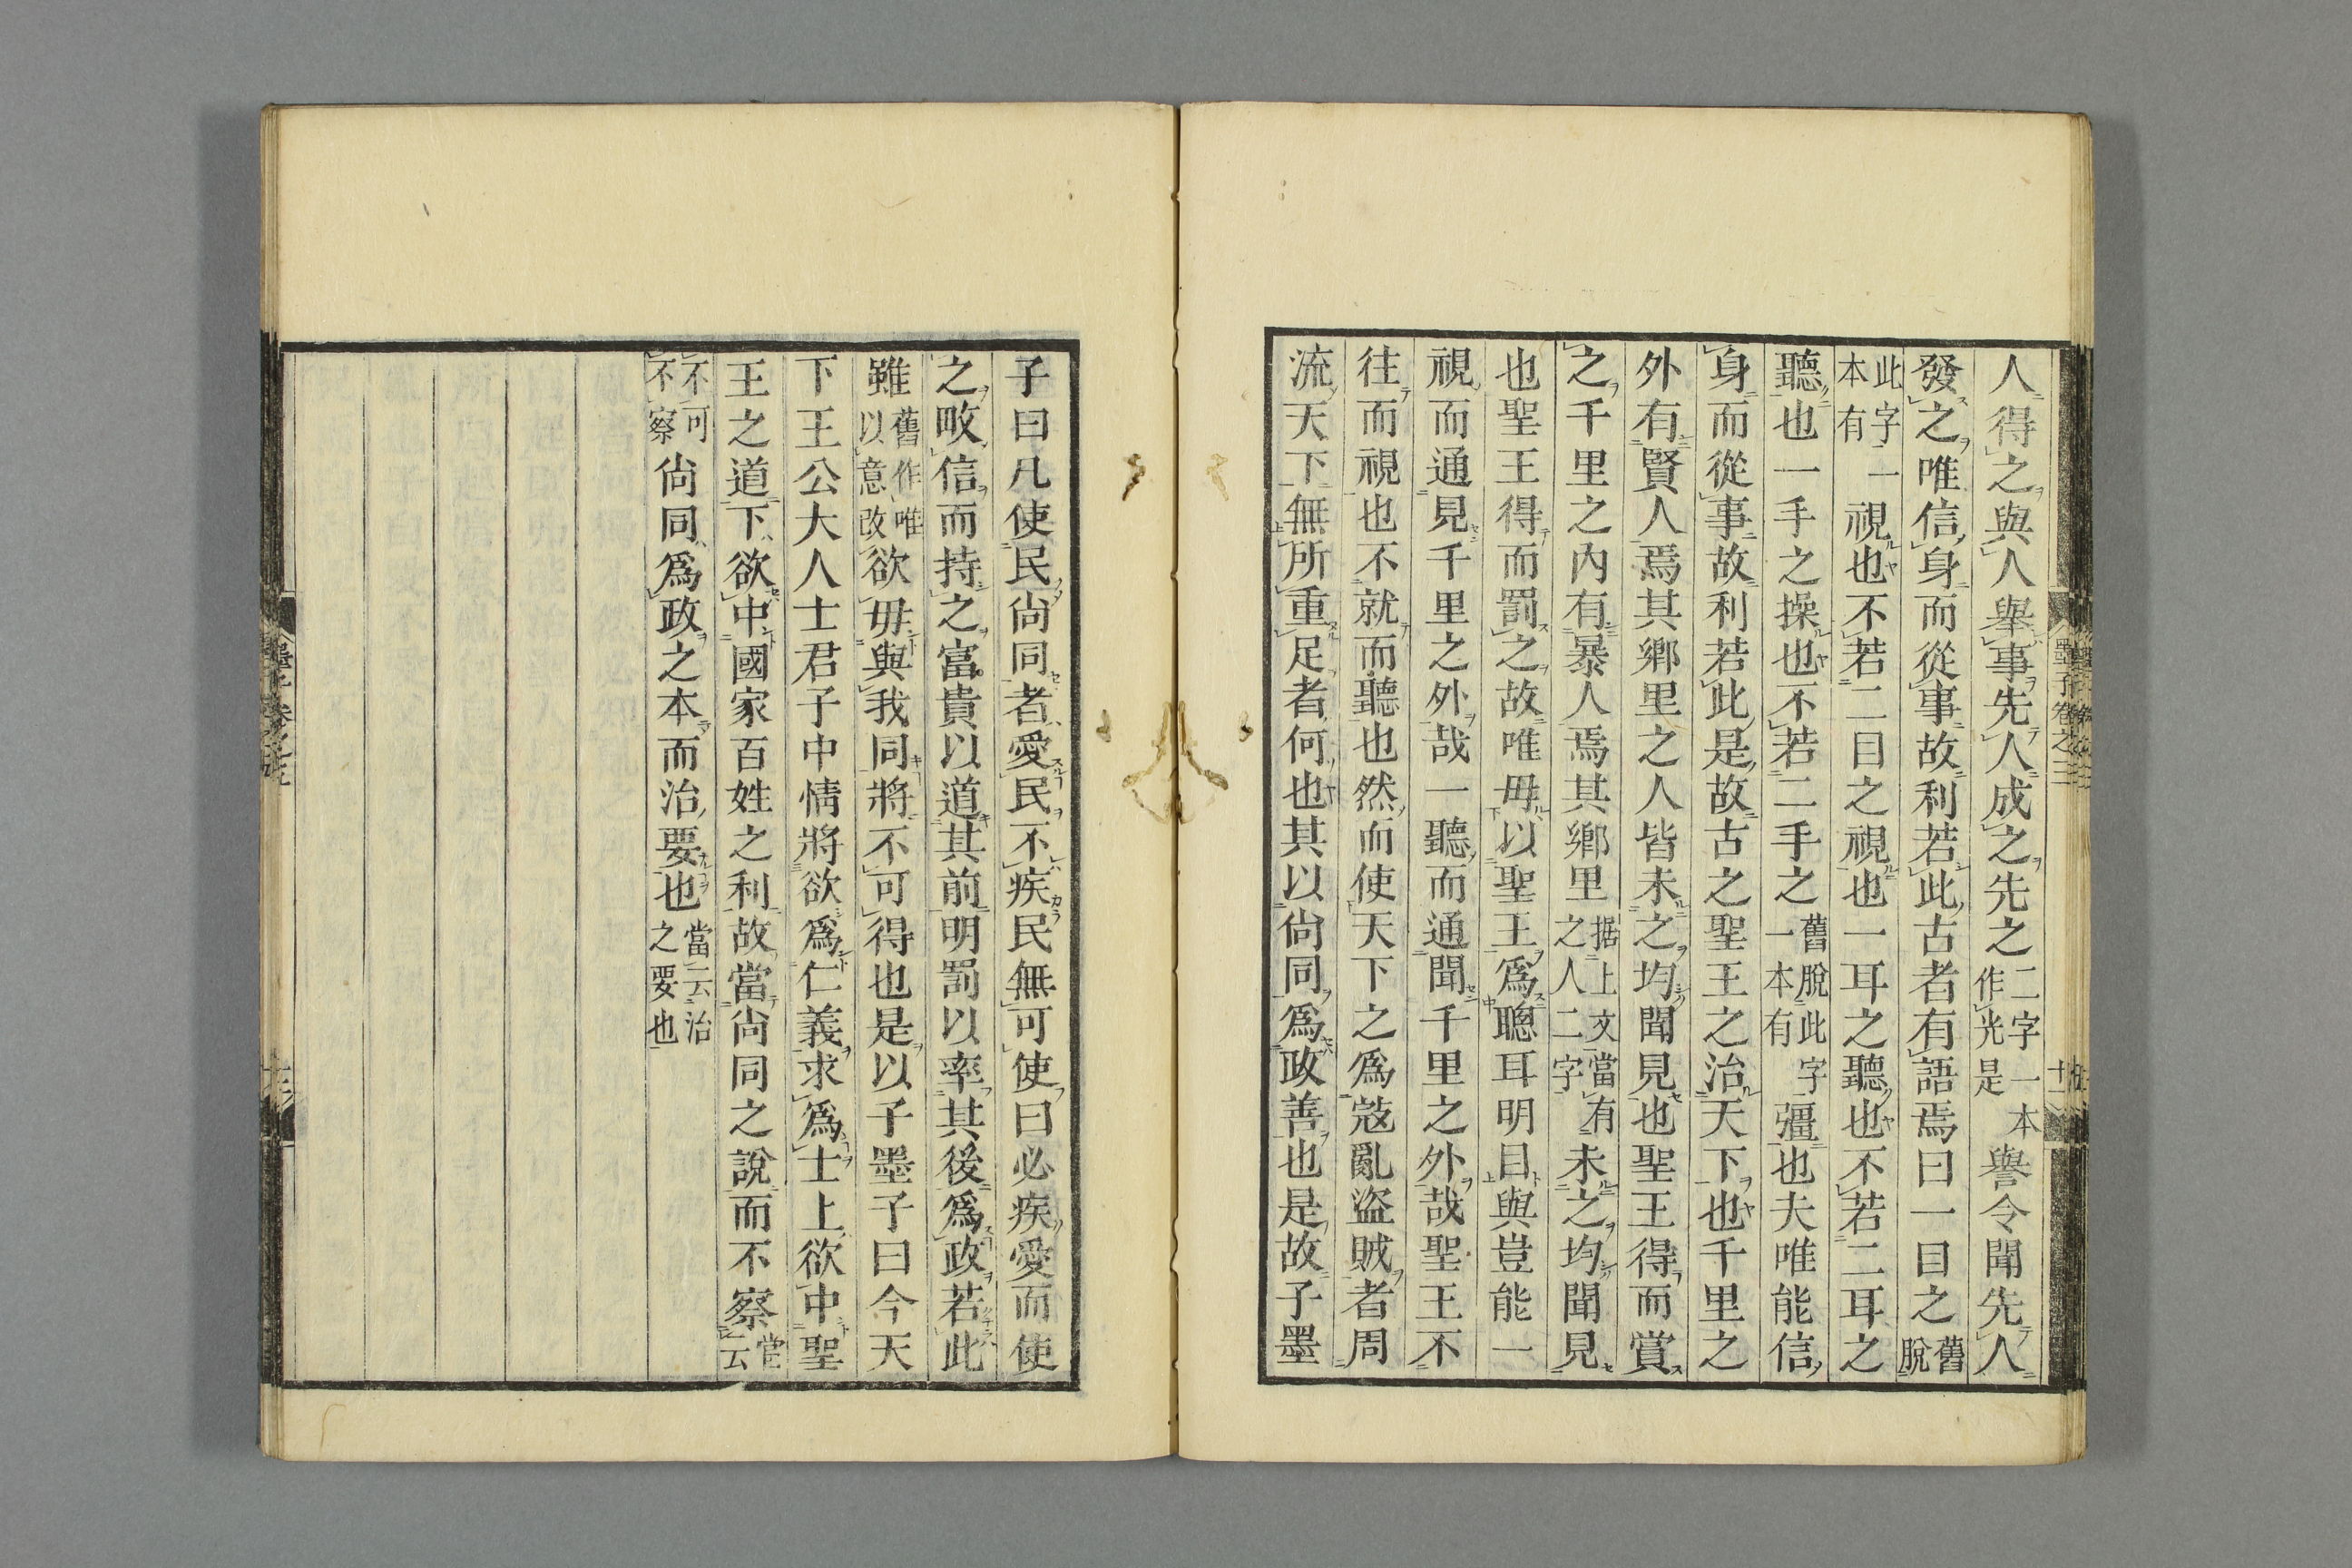 人得之與人舉事先人成之先之二字一本作光是譽令聞先人
發之唯信身而從事故利若此古者有語焉曰一目之舊脫
此字本有一視也不若二目之視也一耳之聽也不若二耳之
聽也一手之操也不若二手之舊脫此字一本有彊也夫唯能信
身而從事故利若此是故古之聖王之治天下也千里之
外有賢人焉其鄉里之人皆未之均聞見也聖王得而賞
之千里之內有暴人焉其鄉里据上文當有之人二字未之均聞見
也聖王得而罰之故唯毋以聖王爲聰耳明目與豈能一
視而通見千里之外哉一聽而通聞千里之外哉聖王不
往而視也不就而聽也然而使天下之爲寇亂盜賊者周
流天下無所重足者何也其以尙同爲政善也是故子墨
子曰凡使民尙同者愛民不疾民無可使曰必疾愛而使
之畋信而持之富貴以道其前明罰以率其後爲政若此
雖舊作唯以意改欲毋與我同將不可得也是以子墨子曰今天
下王公大人士君子中情將欲爲仁義求爲士上欲中聖
王之道下欲中國家百姓之利故當尙同之說而不察當云
不可不察尙同爲政之本而治要也當云治之要也
墨子卷之三